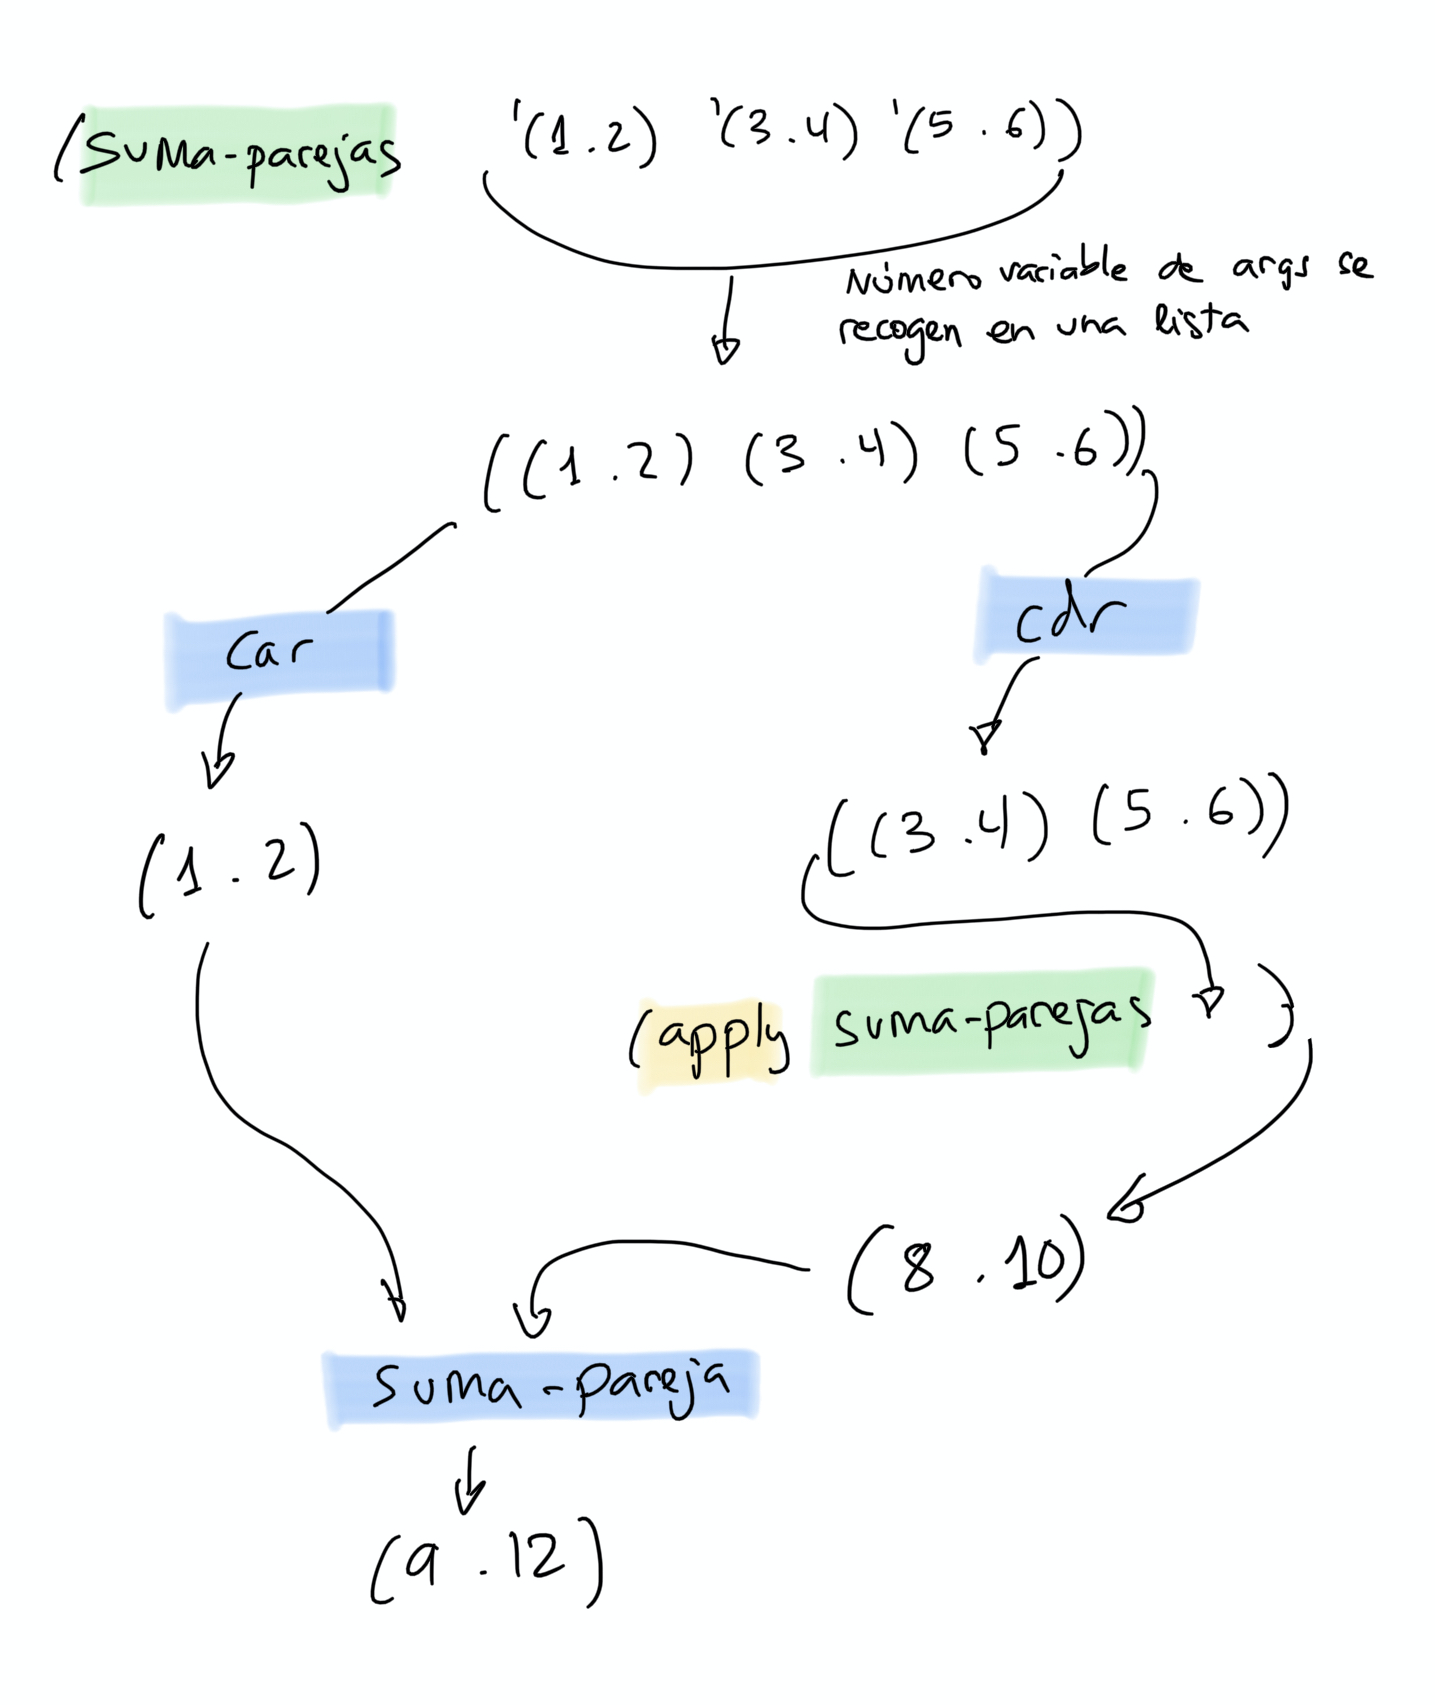 (suma-parejas '(1.2) '(3.4) '(5.6))
Número variable de args se
recogen en una lista
((1.2) (3.4) (5.6))
car
cdr
(1.2)
((3.4) (5.6))
(apply suma-parejas )
(8.10)
suma-pareja
(9.12)